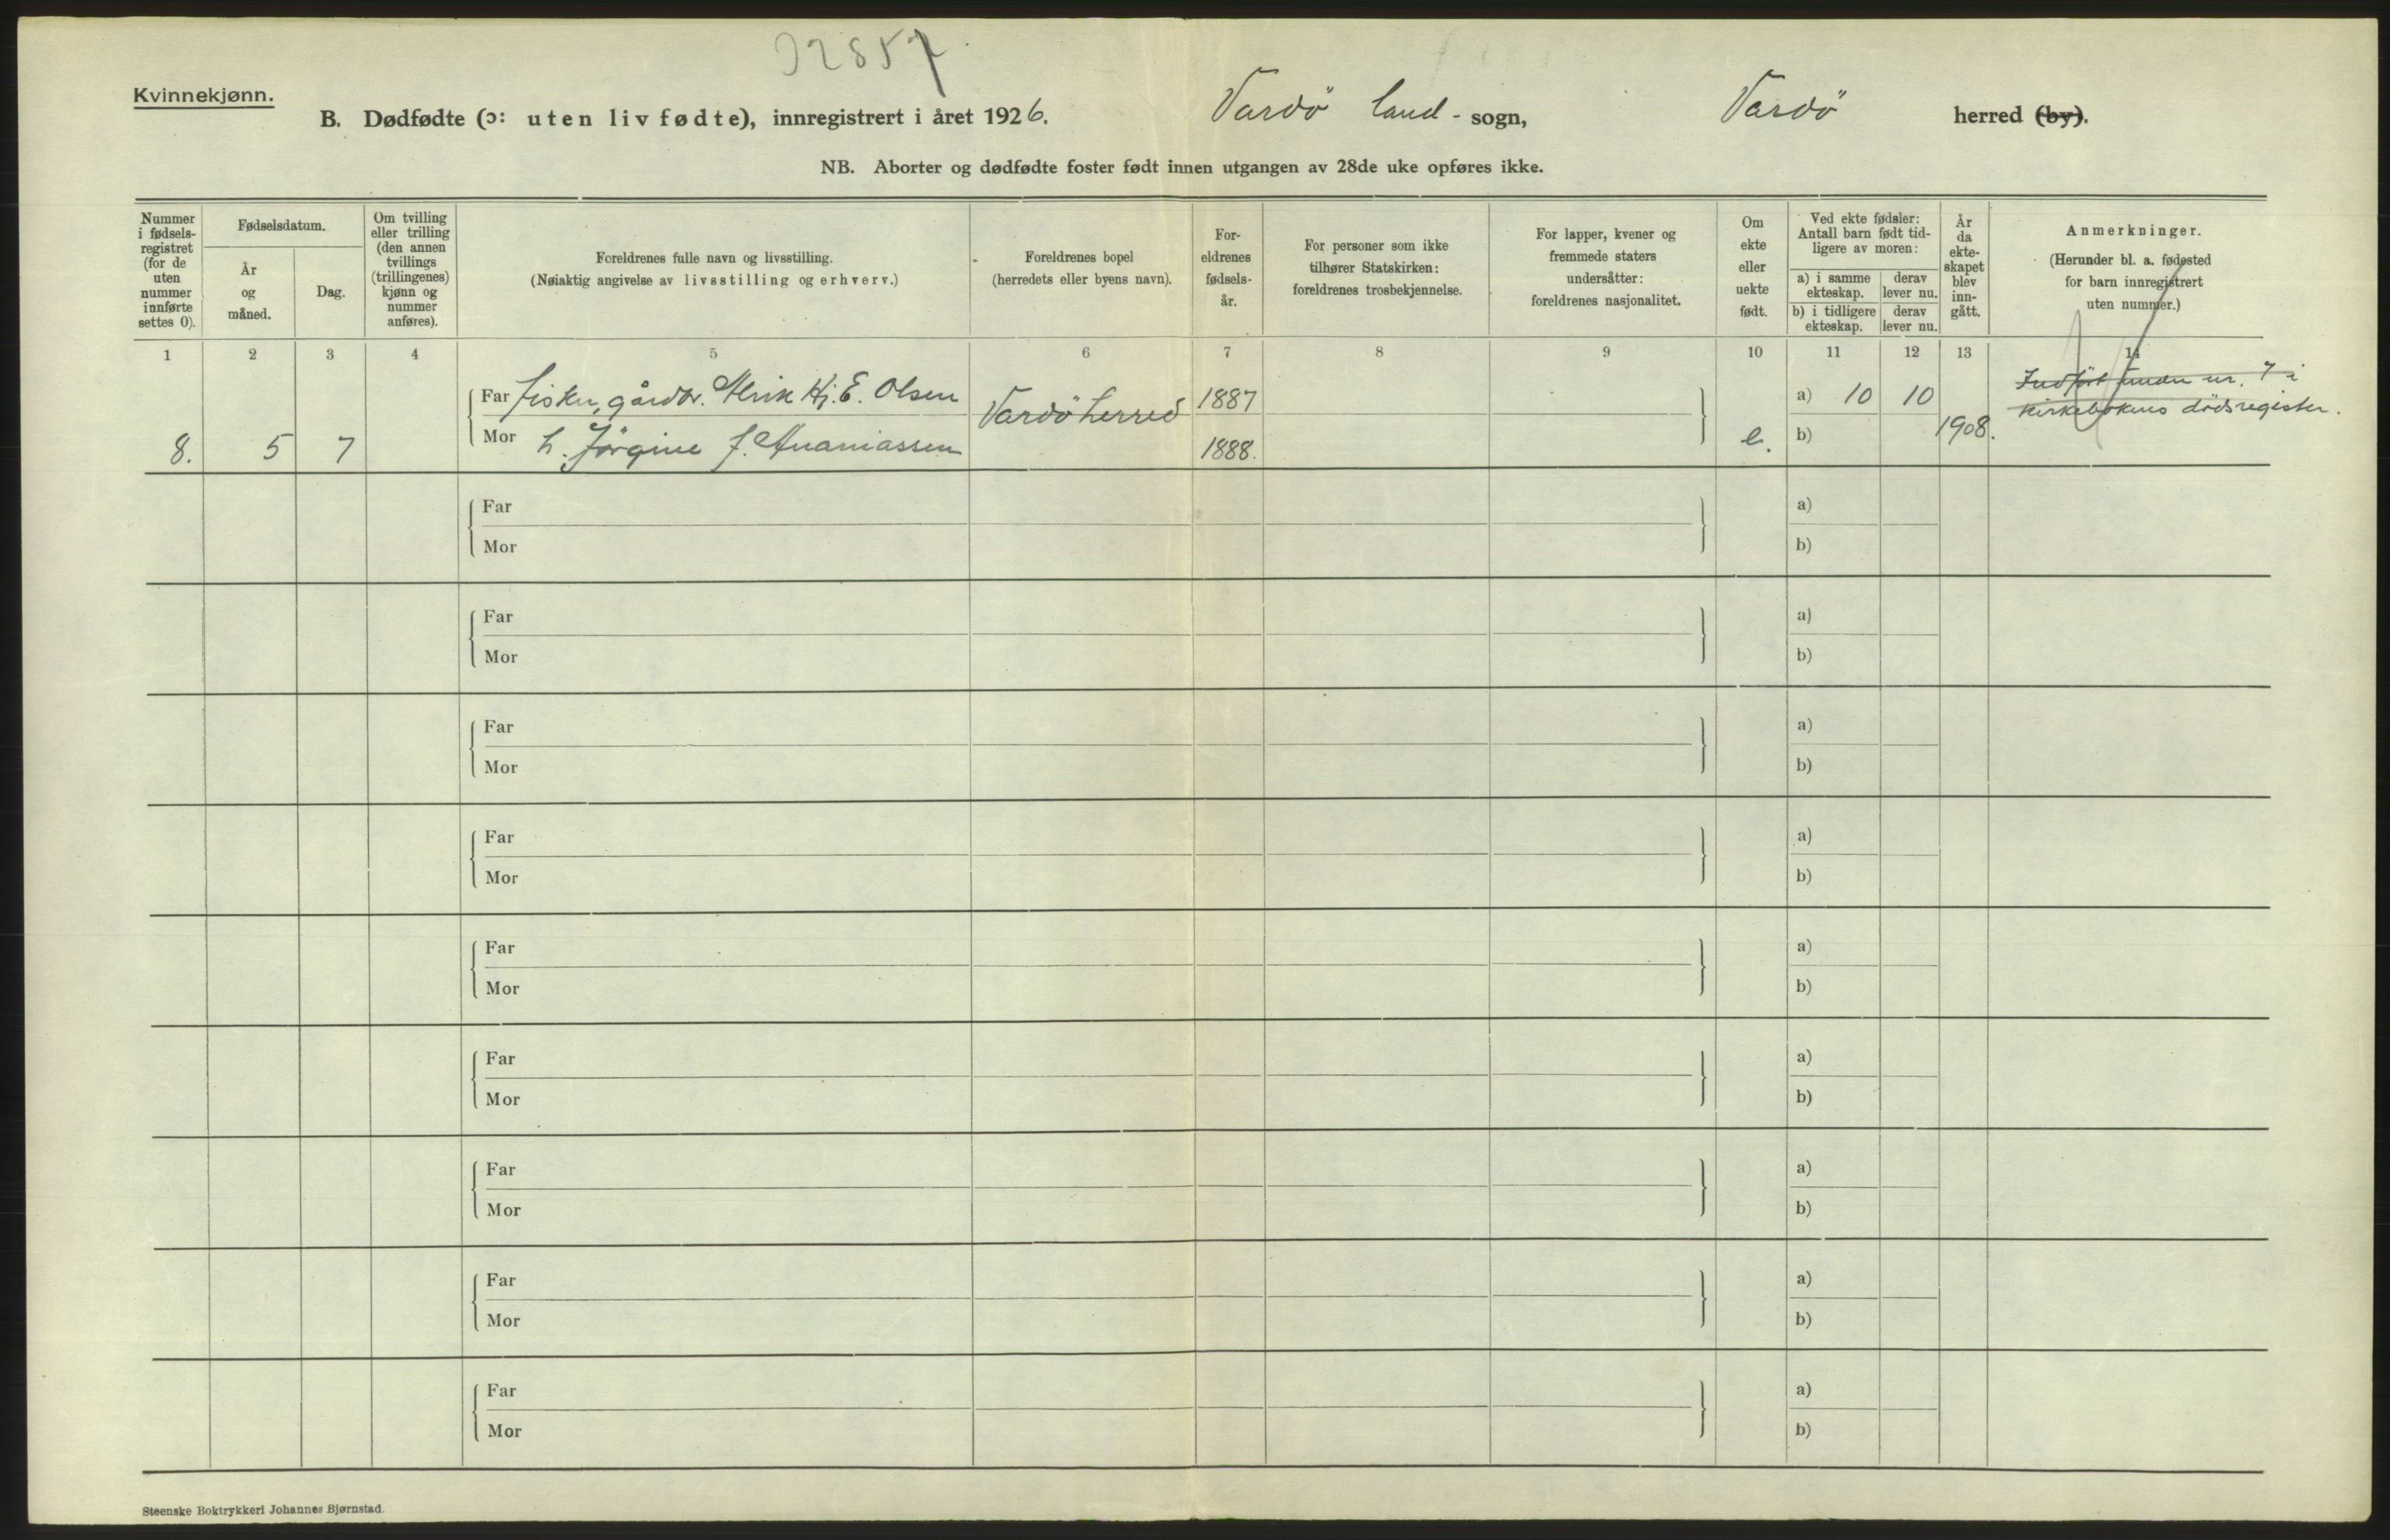 32857
Kvinnekjønn.
B. Dødfødte (ɔ: uten liv fødte), innregistrert i året 1926. Vardö land- sogn, Vardö herred (by).
NB. Aborter og dødfødte foster født innen utgangen av 28de uke opføres ikke.
Nummer i fødsels-registret (for de uten nummer innførte settes 0).
Fødselsdatum.
År og måned.
Dag.
Om tvilling eller trilling (den annen tvillings (trillingenes) kjønn og nummer anføres).
Foreldrenes fulle navn og livsstilling.
(Nøiaktig angivelse av livsstilling og erhverv.)
Foreldrenes bopel
(herredets eller byens navn).
For-eldrenes fødsels-år.
For personer som ikke tilhører Statskirken: foreldrenes trosbekjennelse.
For lapper, kvener og fremmede staters undersåtter: foreldrenes nasjonalitet.
Om ekte eller uekte født.
Ved ekte fødsler: Antall barn født tid-ligere av moren:
a) i samme ekteskap. derav lever nu.
b) i tidligere ekteskap. derav lever nu.
År da ekte-skapet blev inn-gått.
Anmerkninger.
(Herunder bl. a. fødested for barn innregistrert uten nummer.)
1 2 3 4 5 6 7 8 9 10 11 12 13 14
Far Fisker, gårdbr. Alrik Hj. E. Olsen Vardö herred 1887 a) 10 10 Indført under nr. 7 i
kirkebokens dödsregister.
8. 5 7 Mor h. Jörgine J. Ananiassen 1888. e. b) 1908.
Far a)
Mor b)
Far a)
Mor b)
Far a)
Mor b)
Far a)
Mor b)
Far a)
Mor b)
Far a)
Mor b)
Far a)
Mor b)
Far a)
Mor b)
Far a)
Mor b)
Steenske Boktrykkeri Johannes Bjørnstad.